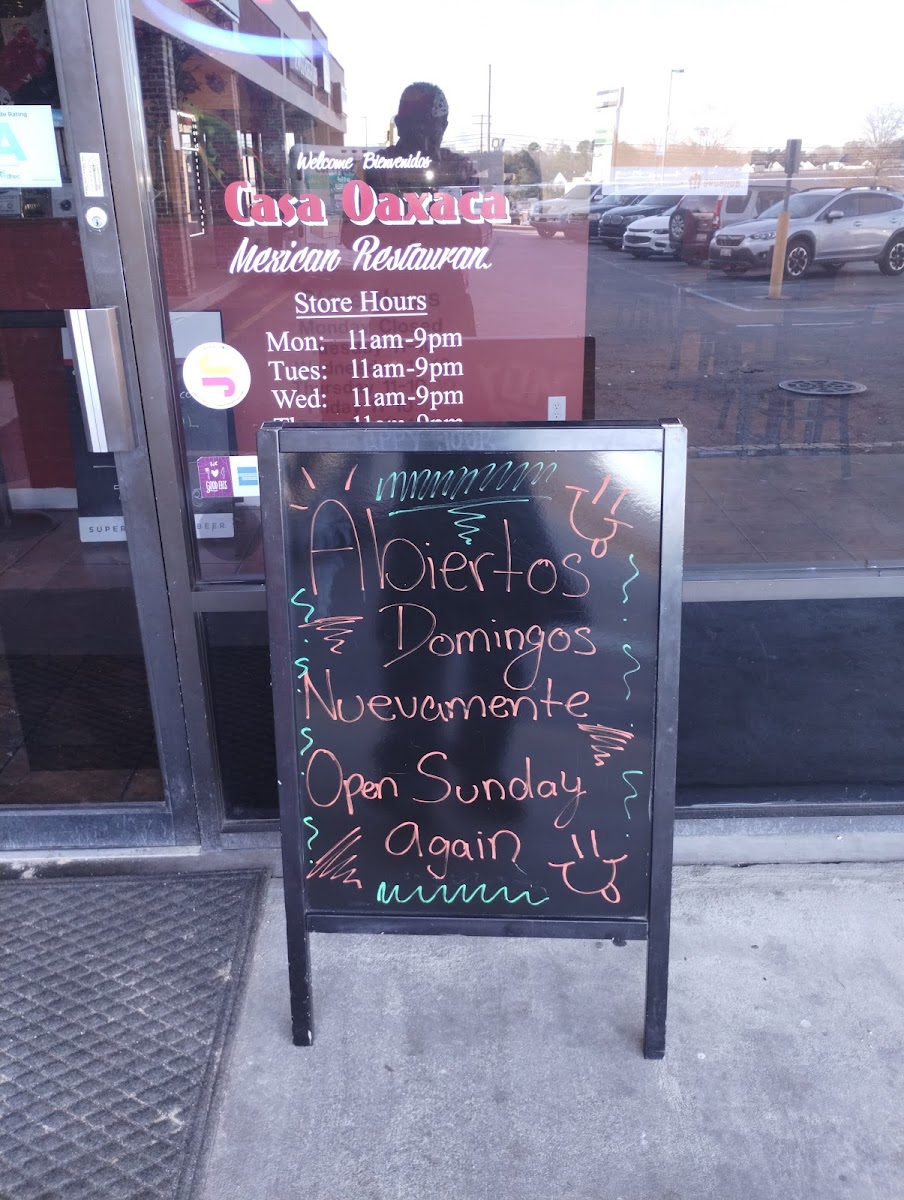 Welcome Bienvenidos
Casa Oaxaca
Mexican Restauran
Store Hours
Mon: 11am-9pm
Tues: 11am-9pm
Wed: 11am-9pm
11am-9pm
A
GOOD EATS
SUPER
BEER
Abiertos
Domingos
Nuevamente
Open Sunday
again